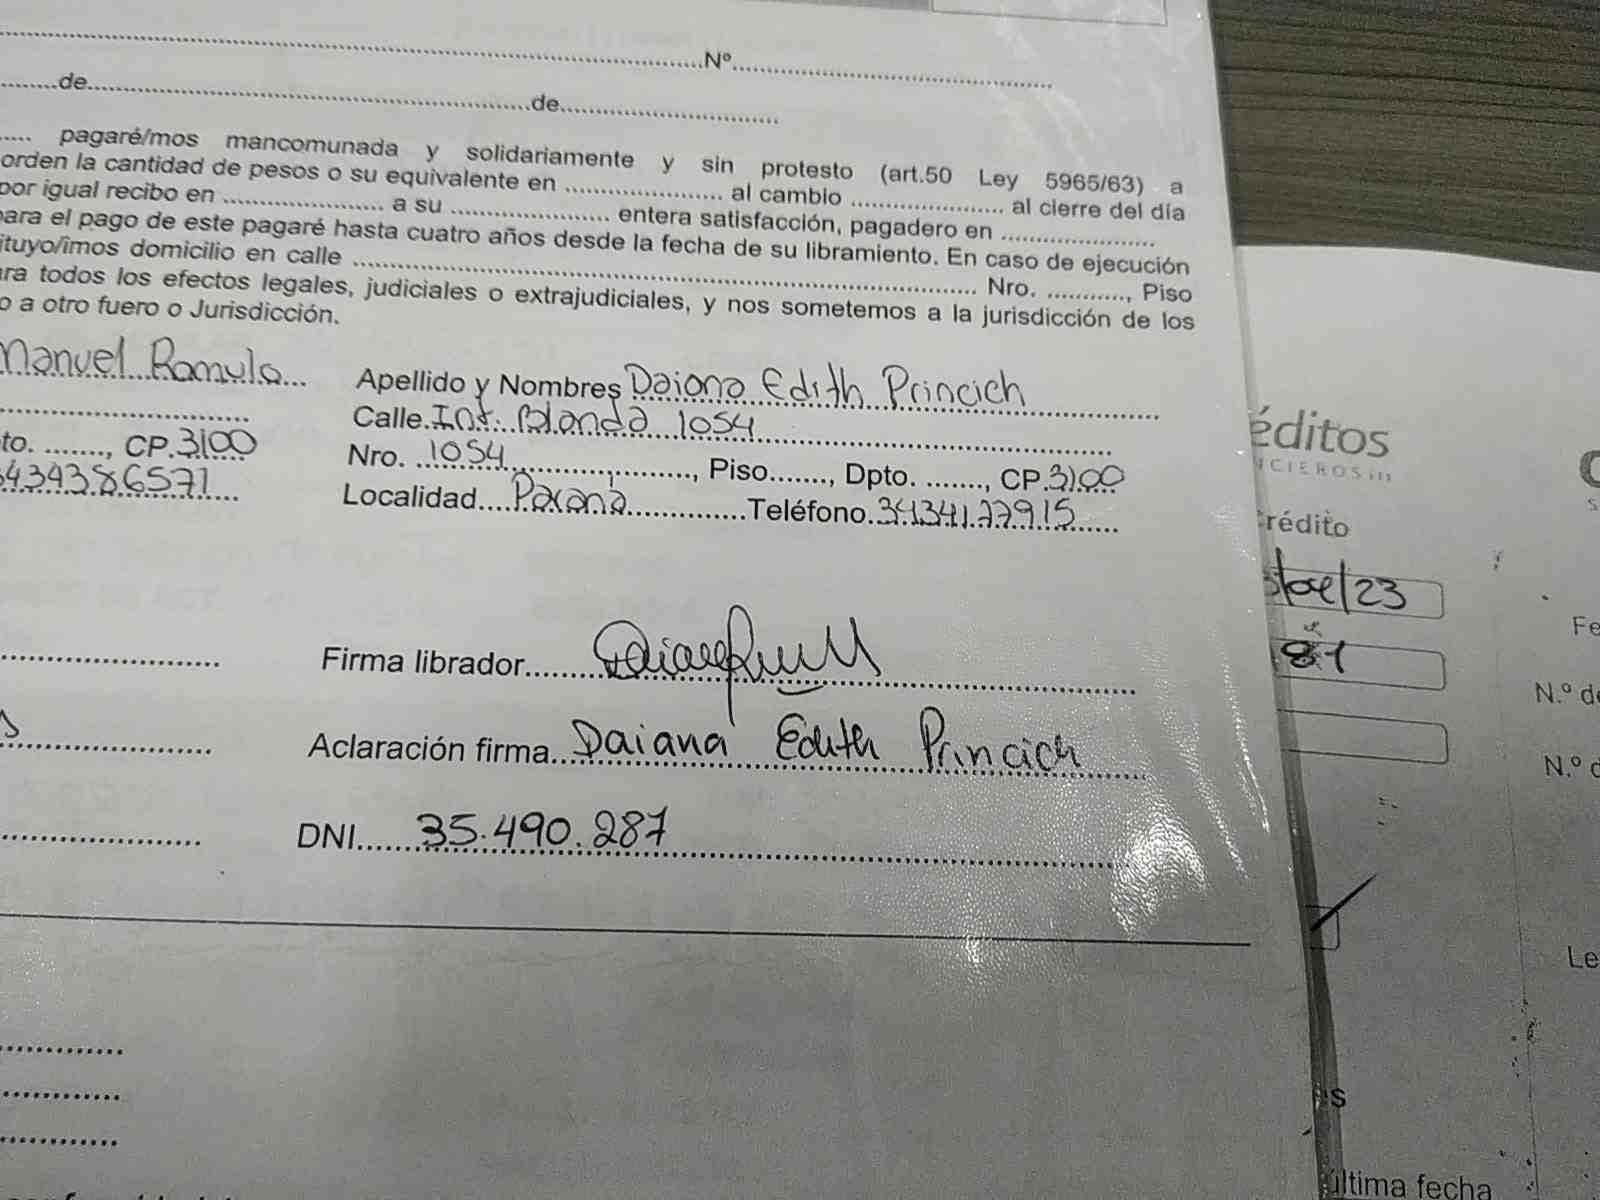 Nº
de de
pagaré/mos mancomunada y solidariamente y sin protesto (art.50 Ley 5965/63) a
orden la cantidad de pesos o su equivalente en al cambio al cierre del día
por igual recibo en a su entera satisfacción, pagadero en
para el pago de este pagaré hasta cuatro años desde la fecha de su libramiento. En caso de ejecución
ituyo/imos domicilio en calle Nro. , Piso
ara todos los efectos legales, judiciales o extrajudiciales, y nos sometemos a la jurisdicción de los
o a otro fuero o Jurisdicción.
Manuel Romulo
Apellido y Nombres Daiana Edith Princich
Calle. Int. Blanda 1054
to. , CP. 3100
Nro. 1054 , Piso , Dpto. , CP. 3100
434386571
Localidad Paraná Teléfono. 3434177915
Firma librador
Aclaración firma Daiana Edith Princich
DNI 35.490.287
éditos
NCIEROS
rédito
/04/23
81
Fe
N.º de
N.º d
Le
s
última fecha